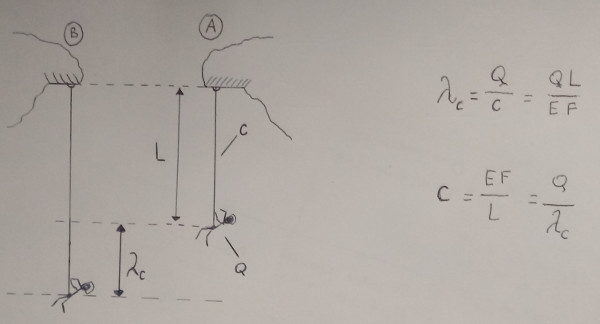 B
A
L
C
λc
Q
λc = Q/C = QL/EF
C = EF/L = Q/λc